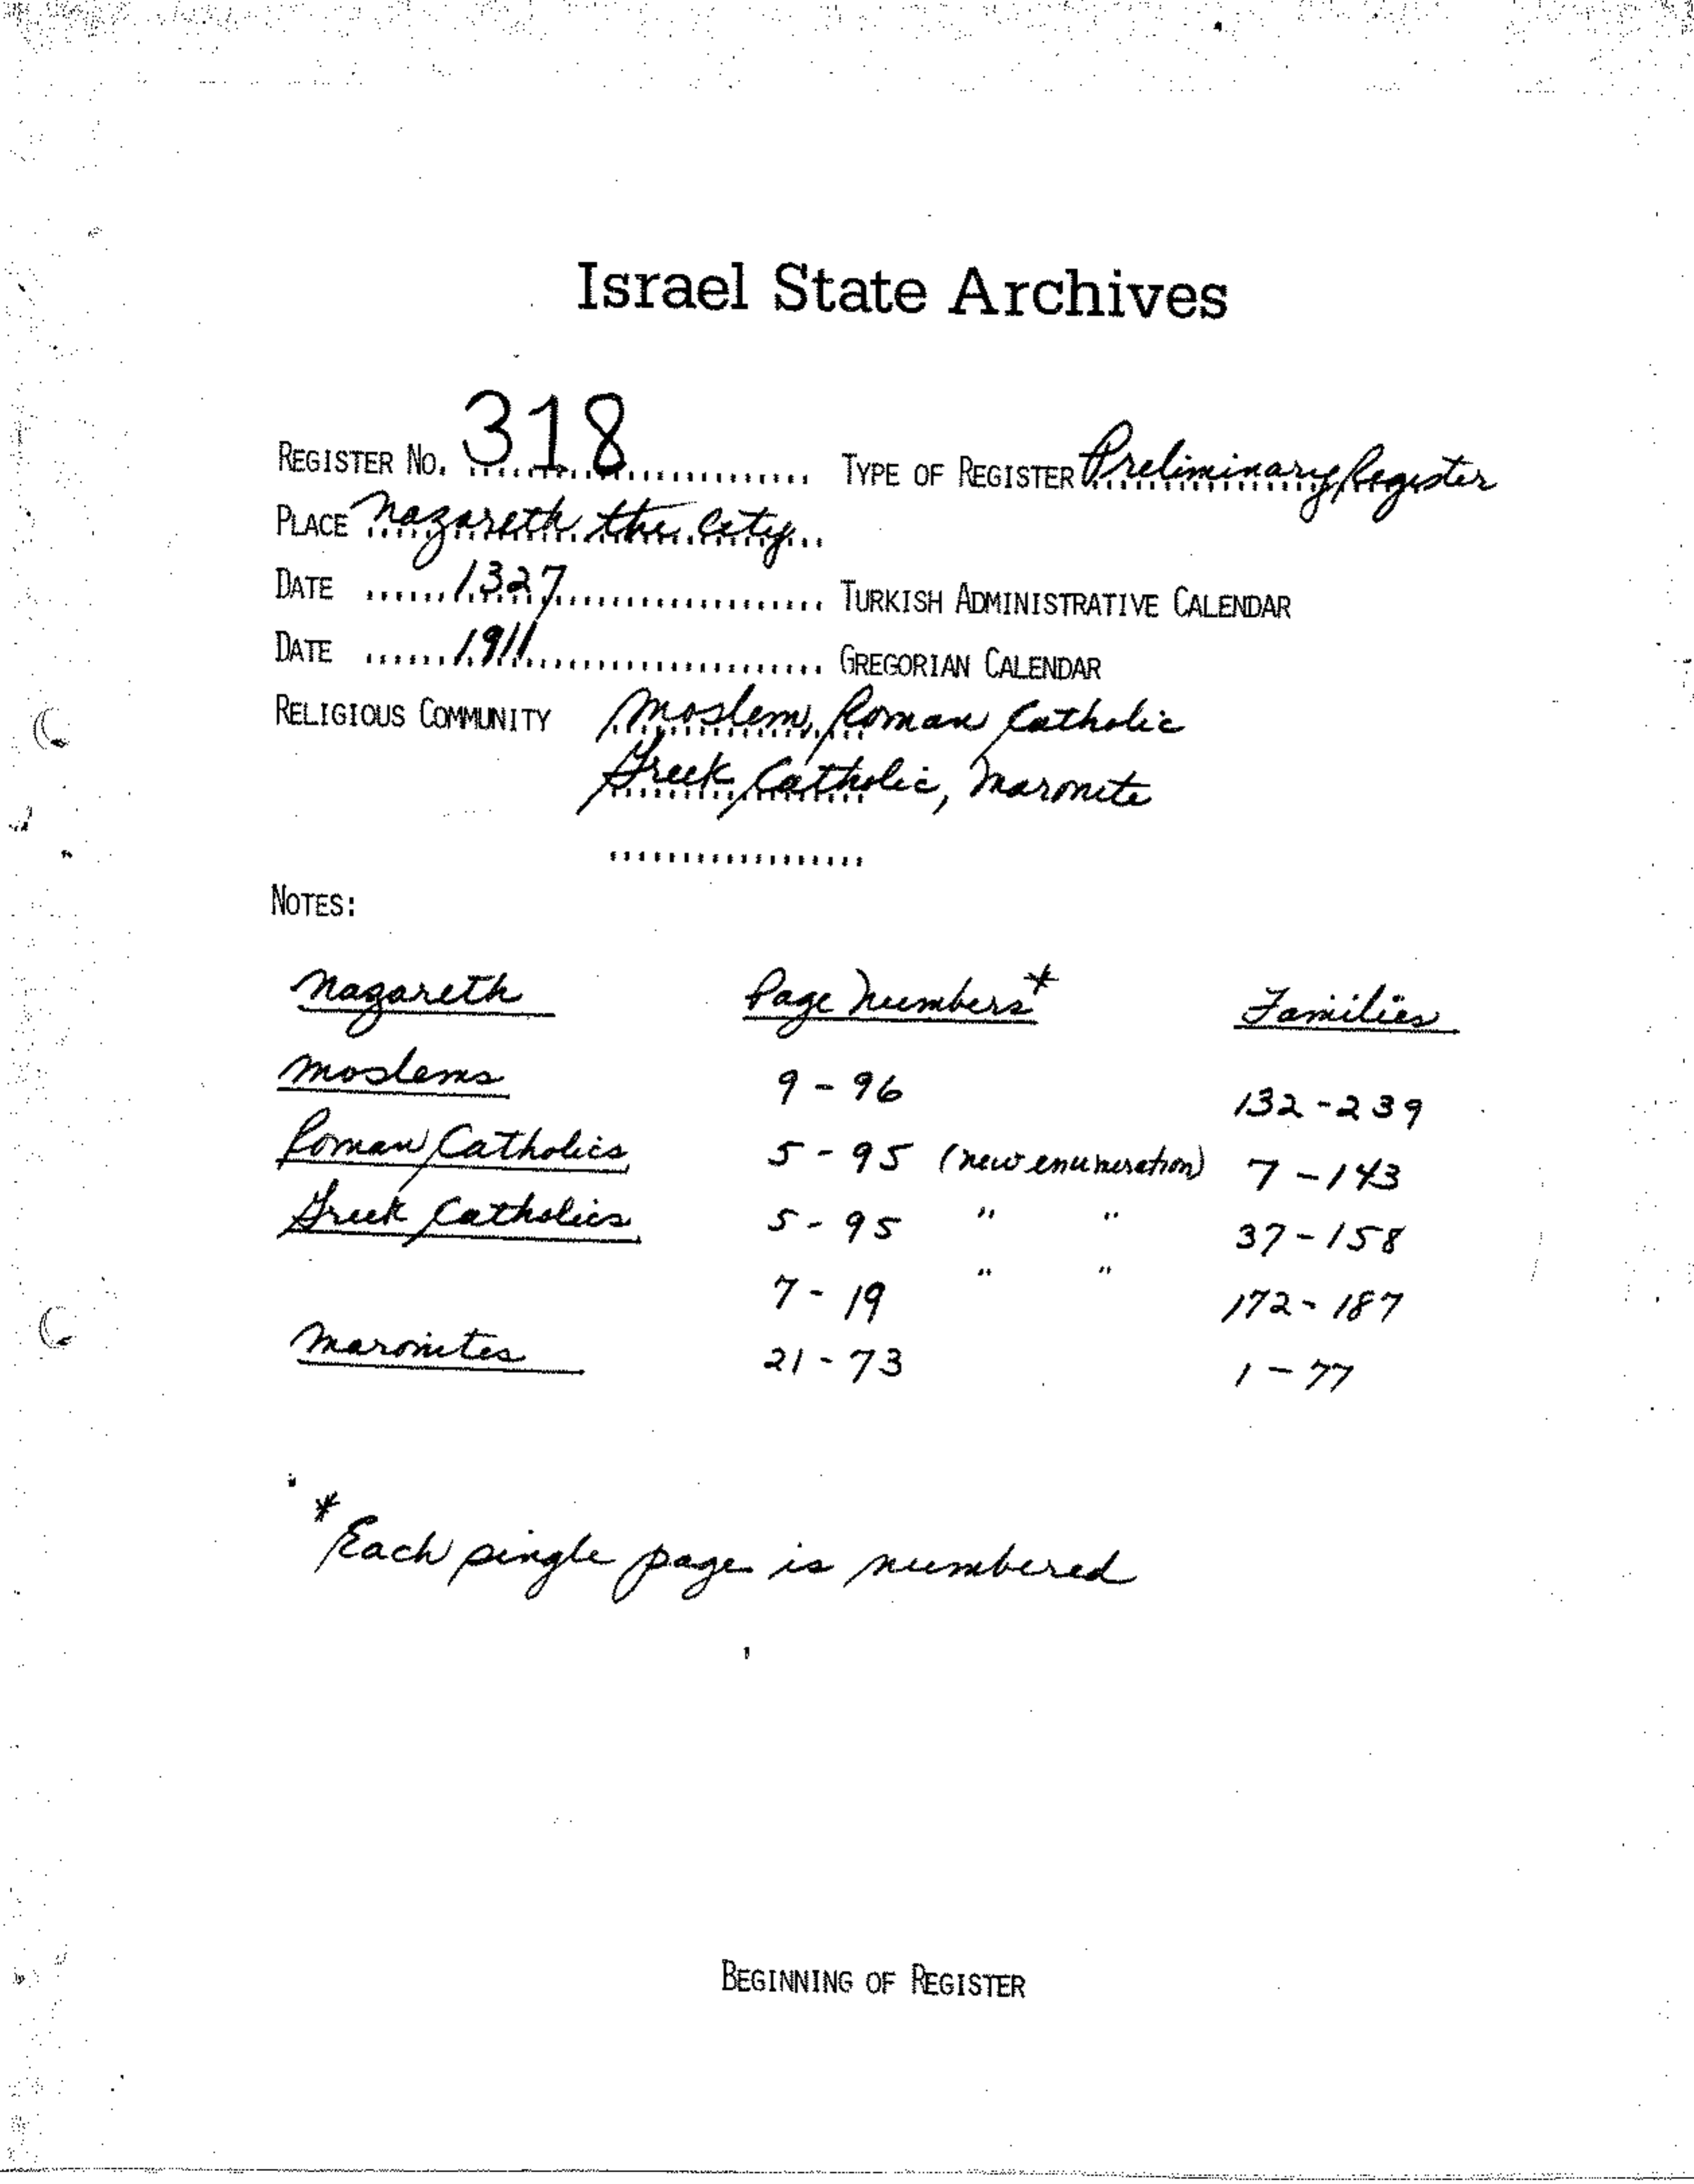 Israel State Archives
REGISTER No. 318 TYPE OF REGISTER Preliminary Register
PLACE Nazareth the City
DATE 1327 TURKISH ADMINISTRATIVE CALENDAR
DATE 1911 GREGORIAN CALENDAR
RELIGIOUS COMMUNITY Moslem, Roman Catholic
Greek Catholic, Maronite
NOTES:
Nazareth Page Numbers* Families
Moslems 9 - 96 132 - 239
Roman Catholics 5 - 95 (new enumeration) 7 - 143
Greek Catholics 5 - 95 " " 37 - 158
7 - 19 " " 172 - 187
Maronites 21 - 73 1 - 77
* Each single page is numbered
BEGINNING OF REGISTER